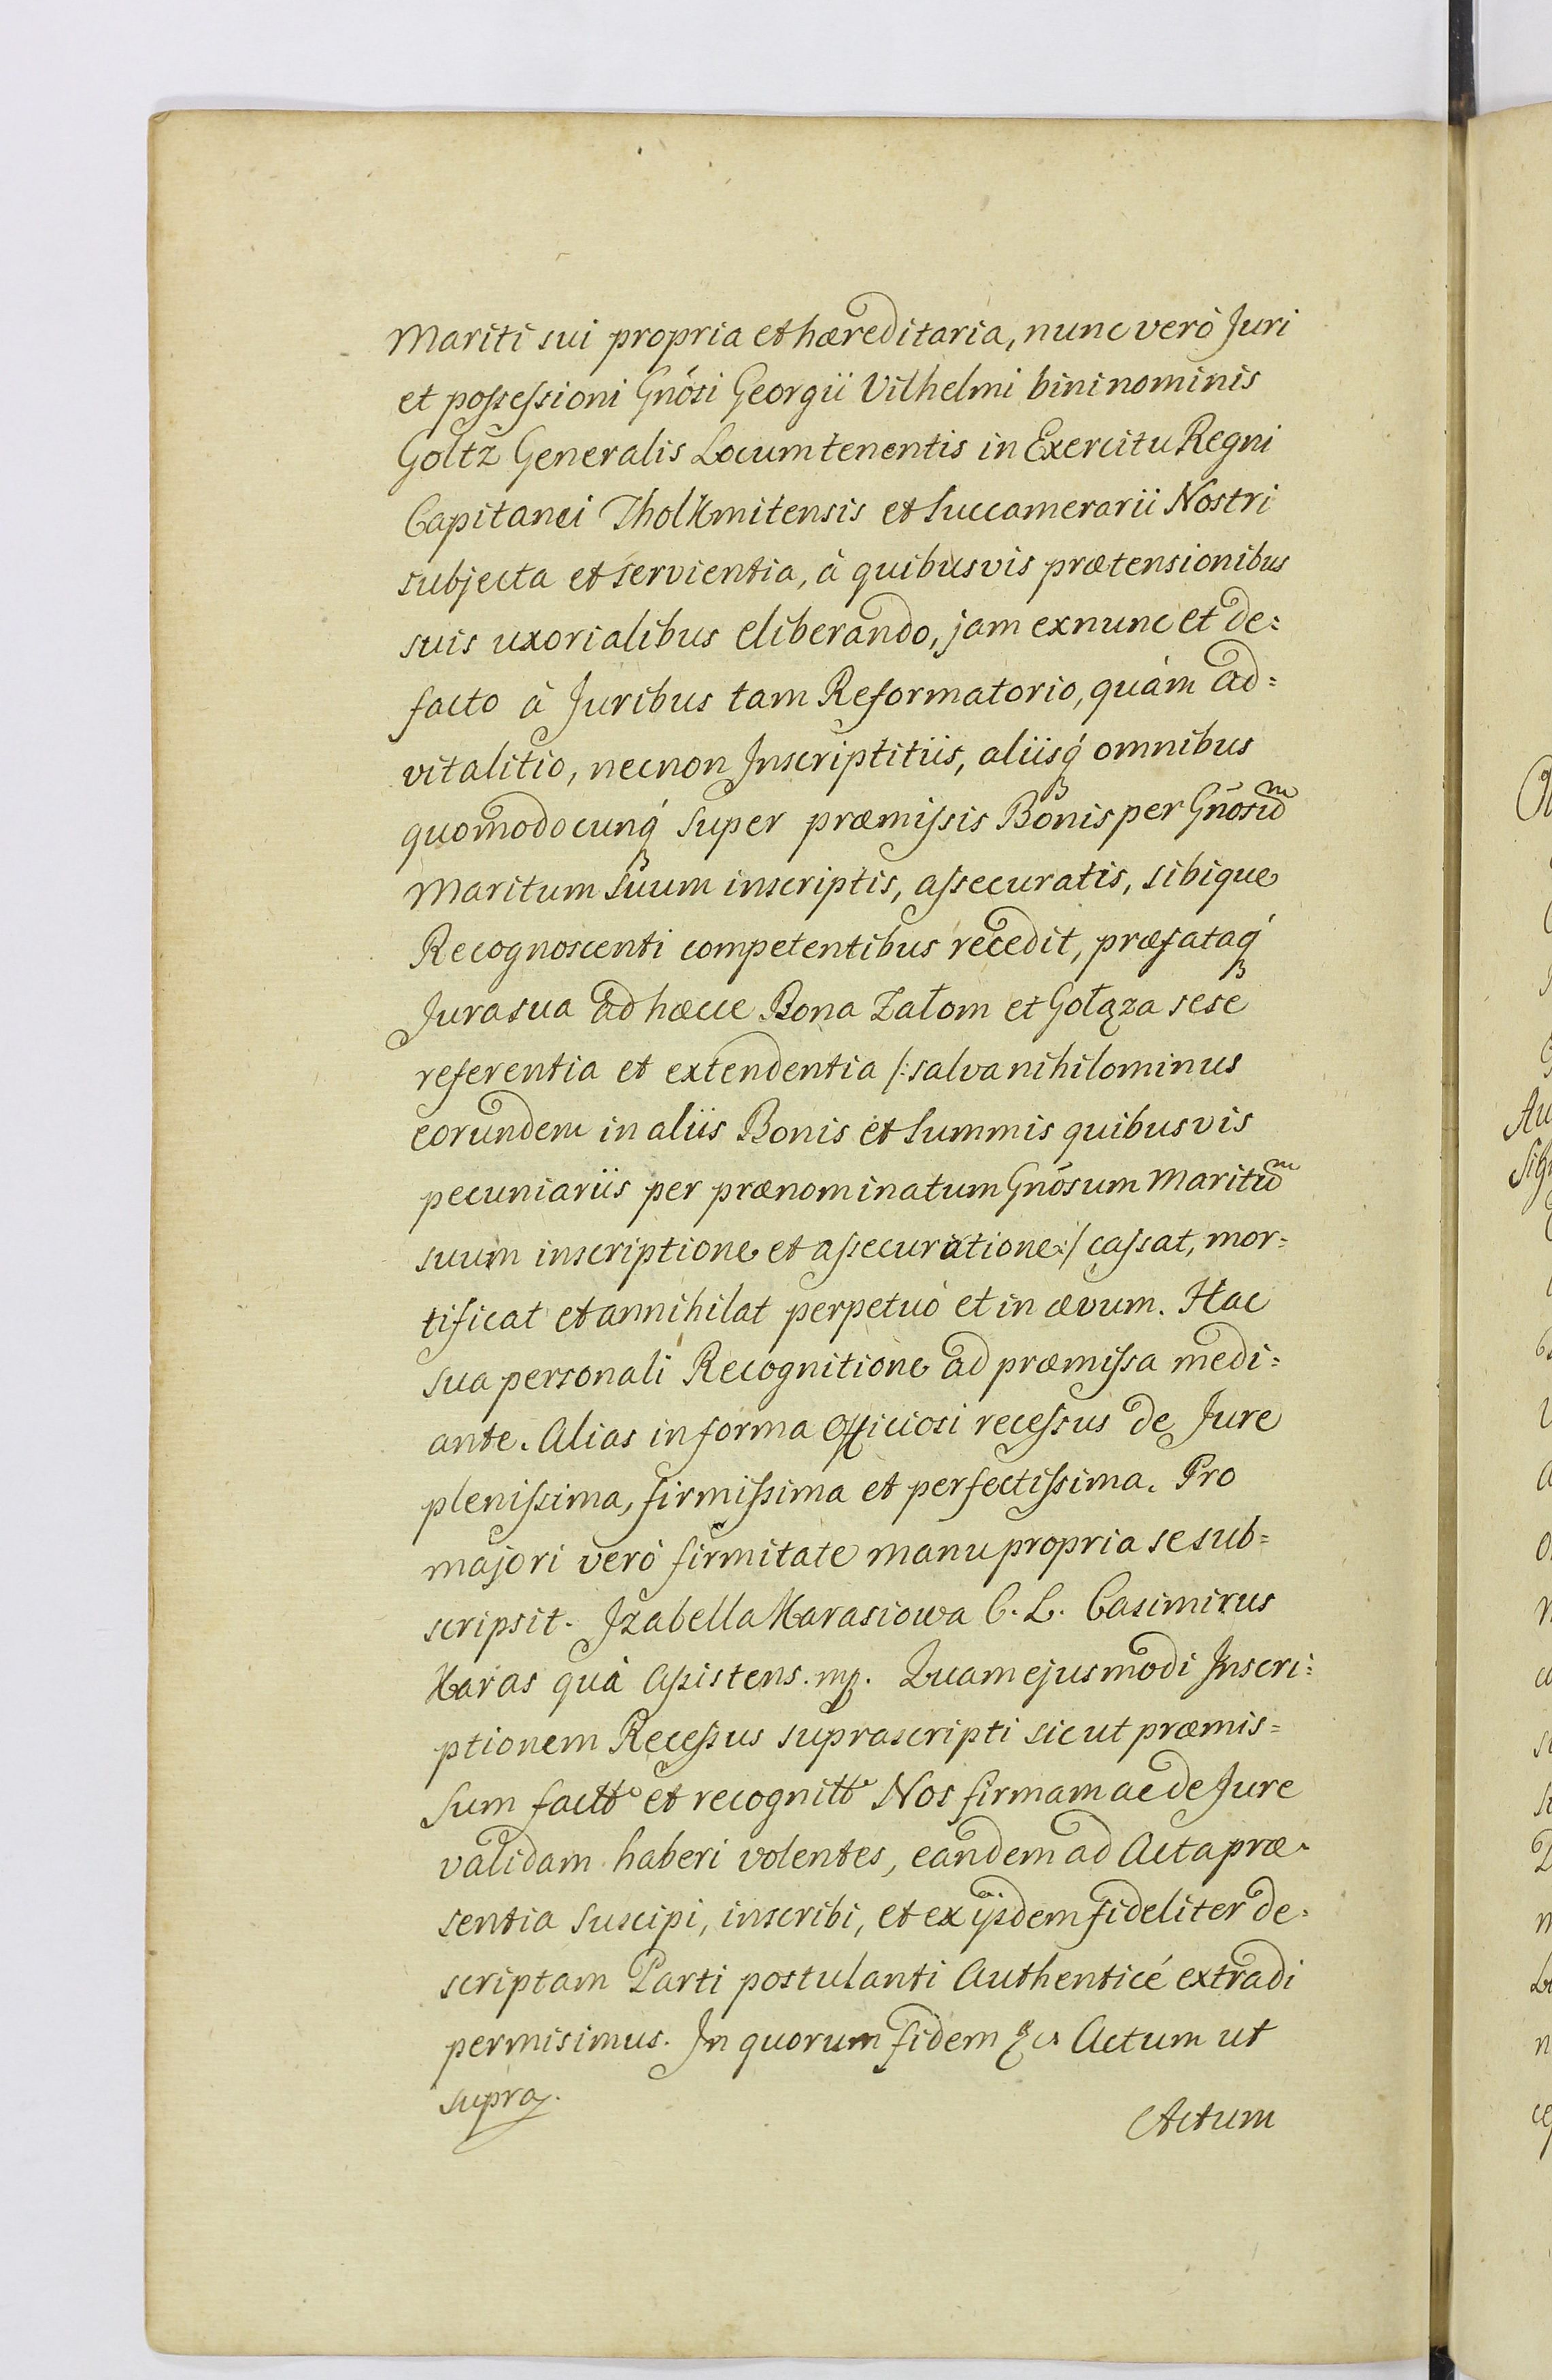 Mariti sui propria et hæreditaria, nunc verò Juri
et poſseſsioni Gnõsi Georgii Vilhelmi bini nominis
Goltz Generalis Locumtenentis in Exercitu Regni
Capitanei Tholkmitensis et Succamerarii Nostri
subjecta et servientia, à quibusvis prætensionibus
suis uxorialibus eliberando, jam exnunc et de=
facto à Juribus tam Reformatorio, quàm ad=
vitalitio, necnon Inscriptitiis, aliisq́ omnibus
quomodocunq́ super præmiſsis Bonis per Gnõsũm
Maritum Suum inscriptis, aſsecuratis, sibique
Recognoscenti competentibus recedit, præfataq́
Jura sua ad hæcce Bona Załom et Gołąza sese
referentia et extendentia /: salva nihilominus
eorundem in aliis Bonis et Summis quibusvis
pecuniariis per prænominatum Gnõsum Maritũm
suum inscriptione et aſsecuratione :/ caſsat, mor=
tificat et annihilat perpetuò et in ævum. Hac
sua personali Recognitione ad præmiſsa medi=
ante. Alias in forma Officiosi receſsus de Jure
pleniſsima, firmiſsima et perfectiſsima. Pro
majori verò firmitate manu propria se sub=
scripsit. Izabella Karasiowa C. L. Casimirus
Karas quà Aſsistens. mp. Quam ejusmodi Inscri=
ptionem Receſsus suprascripti sicut præmis=
sum factt͠e et recognitt͠e Nos firmam ac de Jure
validam haberi volentes, eandem ad Acta præ=
sentia suscipi, inscribi, et ex ijsdem fideliter de=
scriptam Parti postulanti Authenticè extradi
permisimus. In quorum fidem &c. Actum ut
supra.
Actum